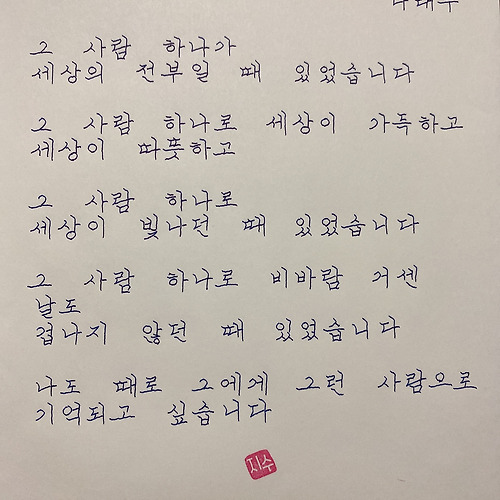 그 사람 하나가
세상의 전부일 때 있었습니다
그 사람 하나로 세상이 가득하고
세상이 따뜻하고
그 사람 하나로
세상이 빛나던 때 있었습니다
그 사람 하나로 비바람 거센
날도
겁나지 않던 때 있었습니다
나도 때로 그에게 그런 사람으로
기억되고 싶습니다
지수